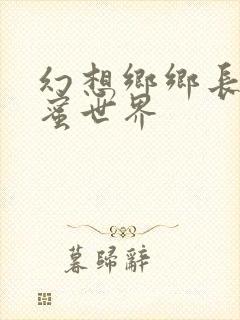 幻想鄉鄉長
蜜世界
暮歸辭